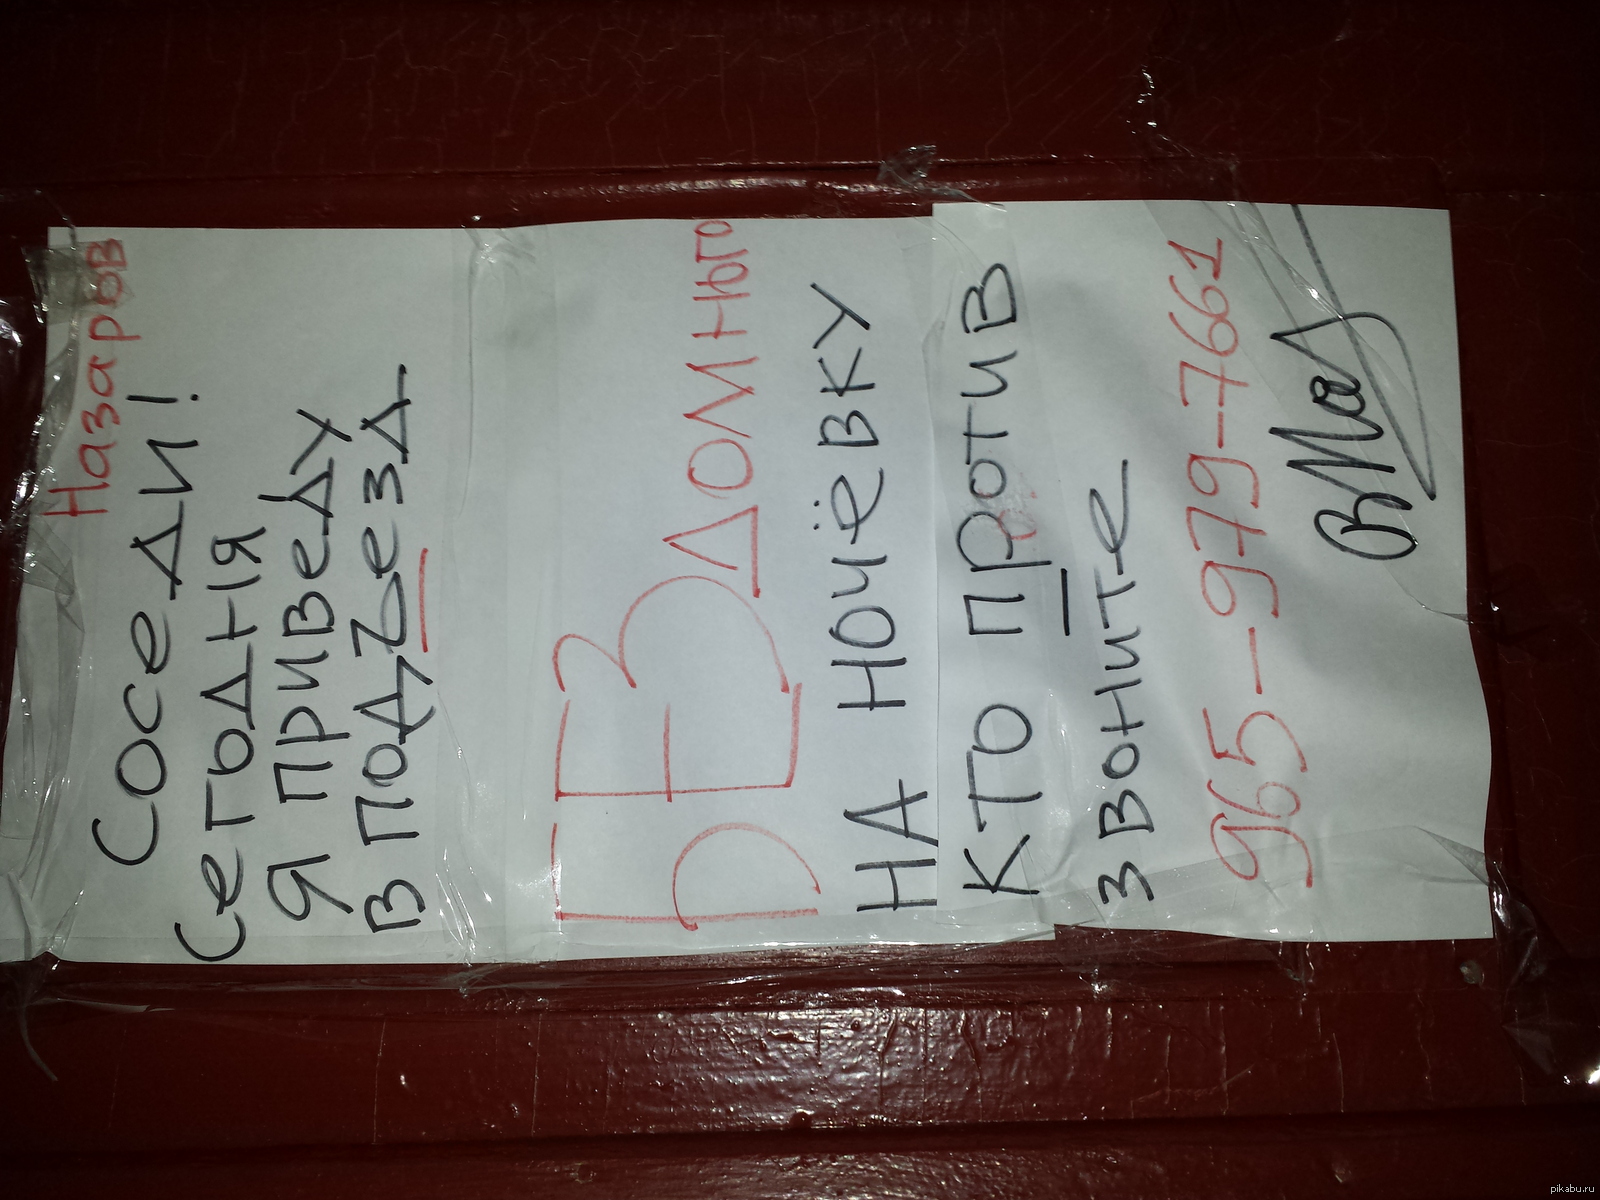 Назаров
СОСЕДИ!
СЕГОДНЯ
Я ПРИВЕДУ
В ПОДЪЕЗД
БЕЗДОМНОГО
НА НОЧЁВКУ
КТО ПРОТИВ
ЗВОНИТЕ
965-979-7661
pikabu.ru